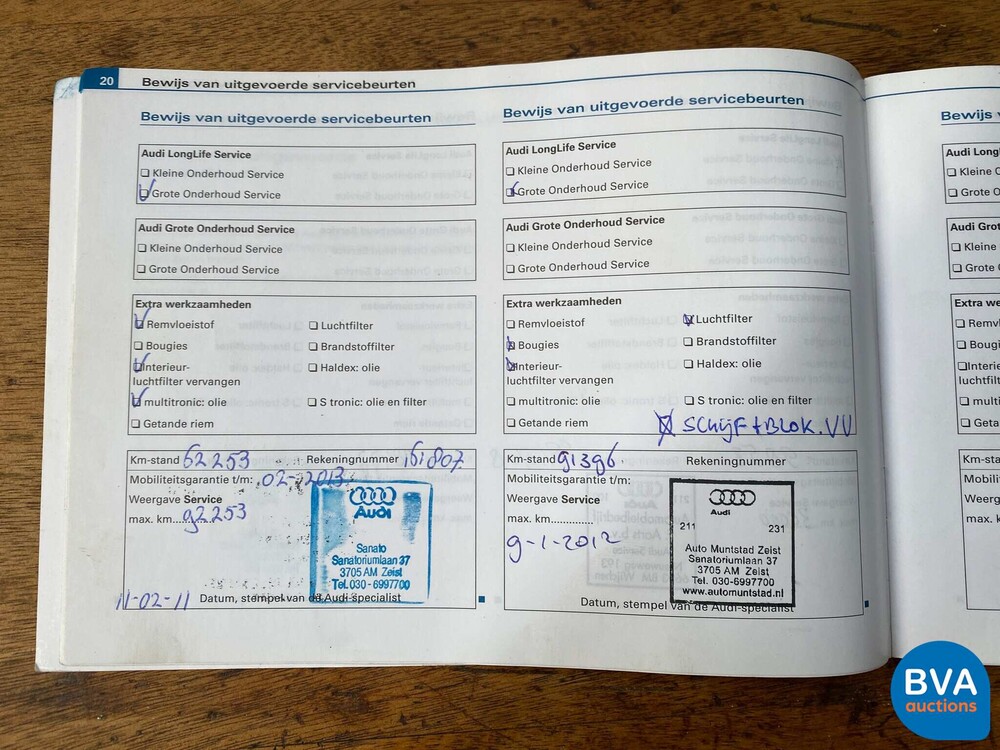 20 Bewijs van uitgevoerde servicebeurten
Bewijs van uitgevoerde servicebeurten
Audi LongLife Service
Kleine Onderhoud Service
Grote Onderhoud Service
Audi Grote Onderhoud Service
Kleine Onderhoud Service
Grote Onderhoud Service
Extra werkzaamheden
Remvloeistof
Luchtfilter
Bougies
Brandstoffilter
Interieur-
luchtfilter vervangen
Haldex: olie
multitronic: olie
S tronic: olie en filter
Getande riem
Km-stand 62253 Rekeningnummer 161807
Mobiliteitsgarantie t/m: 02-2013
Weergave Service
max. km...... 92253
Audi
Sanato
Sanatoriumlaan 37
3705 AM Zeist
Tel. 030-6997700
11-02-11
Datum, stempel van de Audi-specialist
Bewijs van uitgevoerde servicebeurten
Audi LongLife Service
Kleine Onderhoud Service
Grote Onderhoud Service
Audi Grote Onderhoud Service
Kleine Onderhoud Service
Grote Onderhoud Service
Extra werkzaamheden
Remvloeistof
Luchtfilter
Bougies
Brandstoffilter
Interieur-
luchtfilter vervangen
Haldex: olie
multitronic: olie
S tronic: olie en filter
Getande riem
SCHIJF+BLOK.VV
Km-stand 91396. Rekeningnummer
Mobiliteitsgarantie t/m:
Weergave Service
max. km..............
9-1-2012
Audi
211 231
Auto Muntstad Zeist
Sanatoriumlaan 37
3705 AM Zeist
Tel. 030-6997700
www.automuntstad.nl
Datum, stempel van de Audi-specialist
Bewijs v
Audi Long
Kleine O
Grote O
Audi Grot
Kleine
Grote O
Extra we
Remvlo
Bougies
Interieu
luchtfilt
multitro
Getand
Km-stand
Mobilitei
Weergav
max. km
BVA
auctions